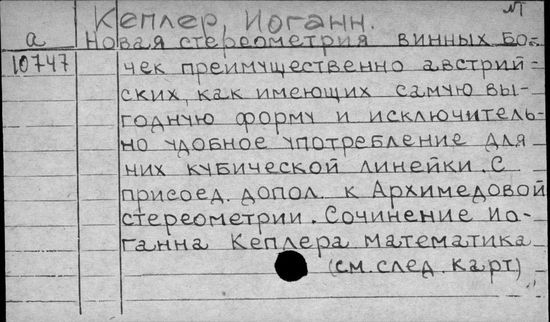 Кеплер, Иоганн.
а Новая стереометрия винных бо-
10747 чек преимущественно австрий-
ских, как имеющих самую вы-
годную форму и исключитель-
но удобное употребление для
них кубической линейки. С
присоед. допол. к Архимедовой
стереометрии. Сочинение Ио-
ганна Кеплера математика
(см. след. карт)